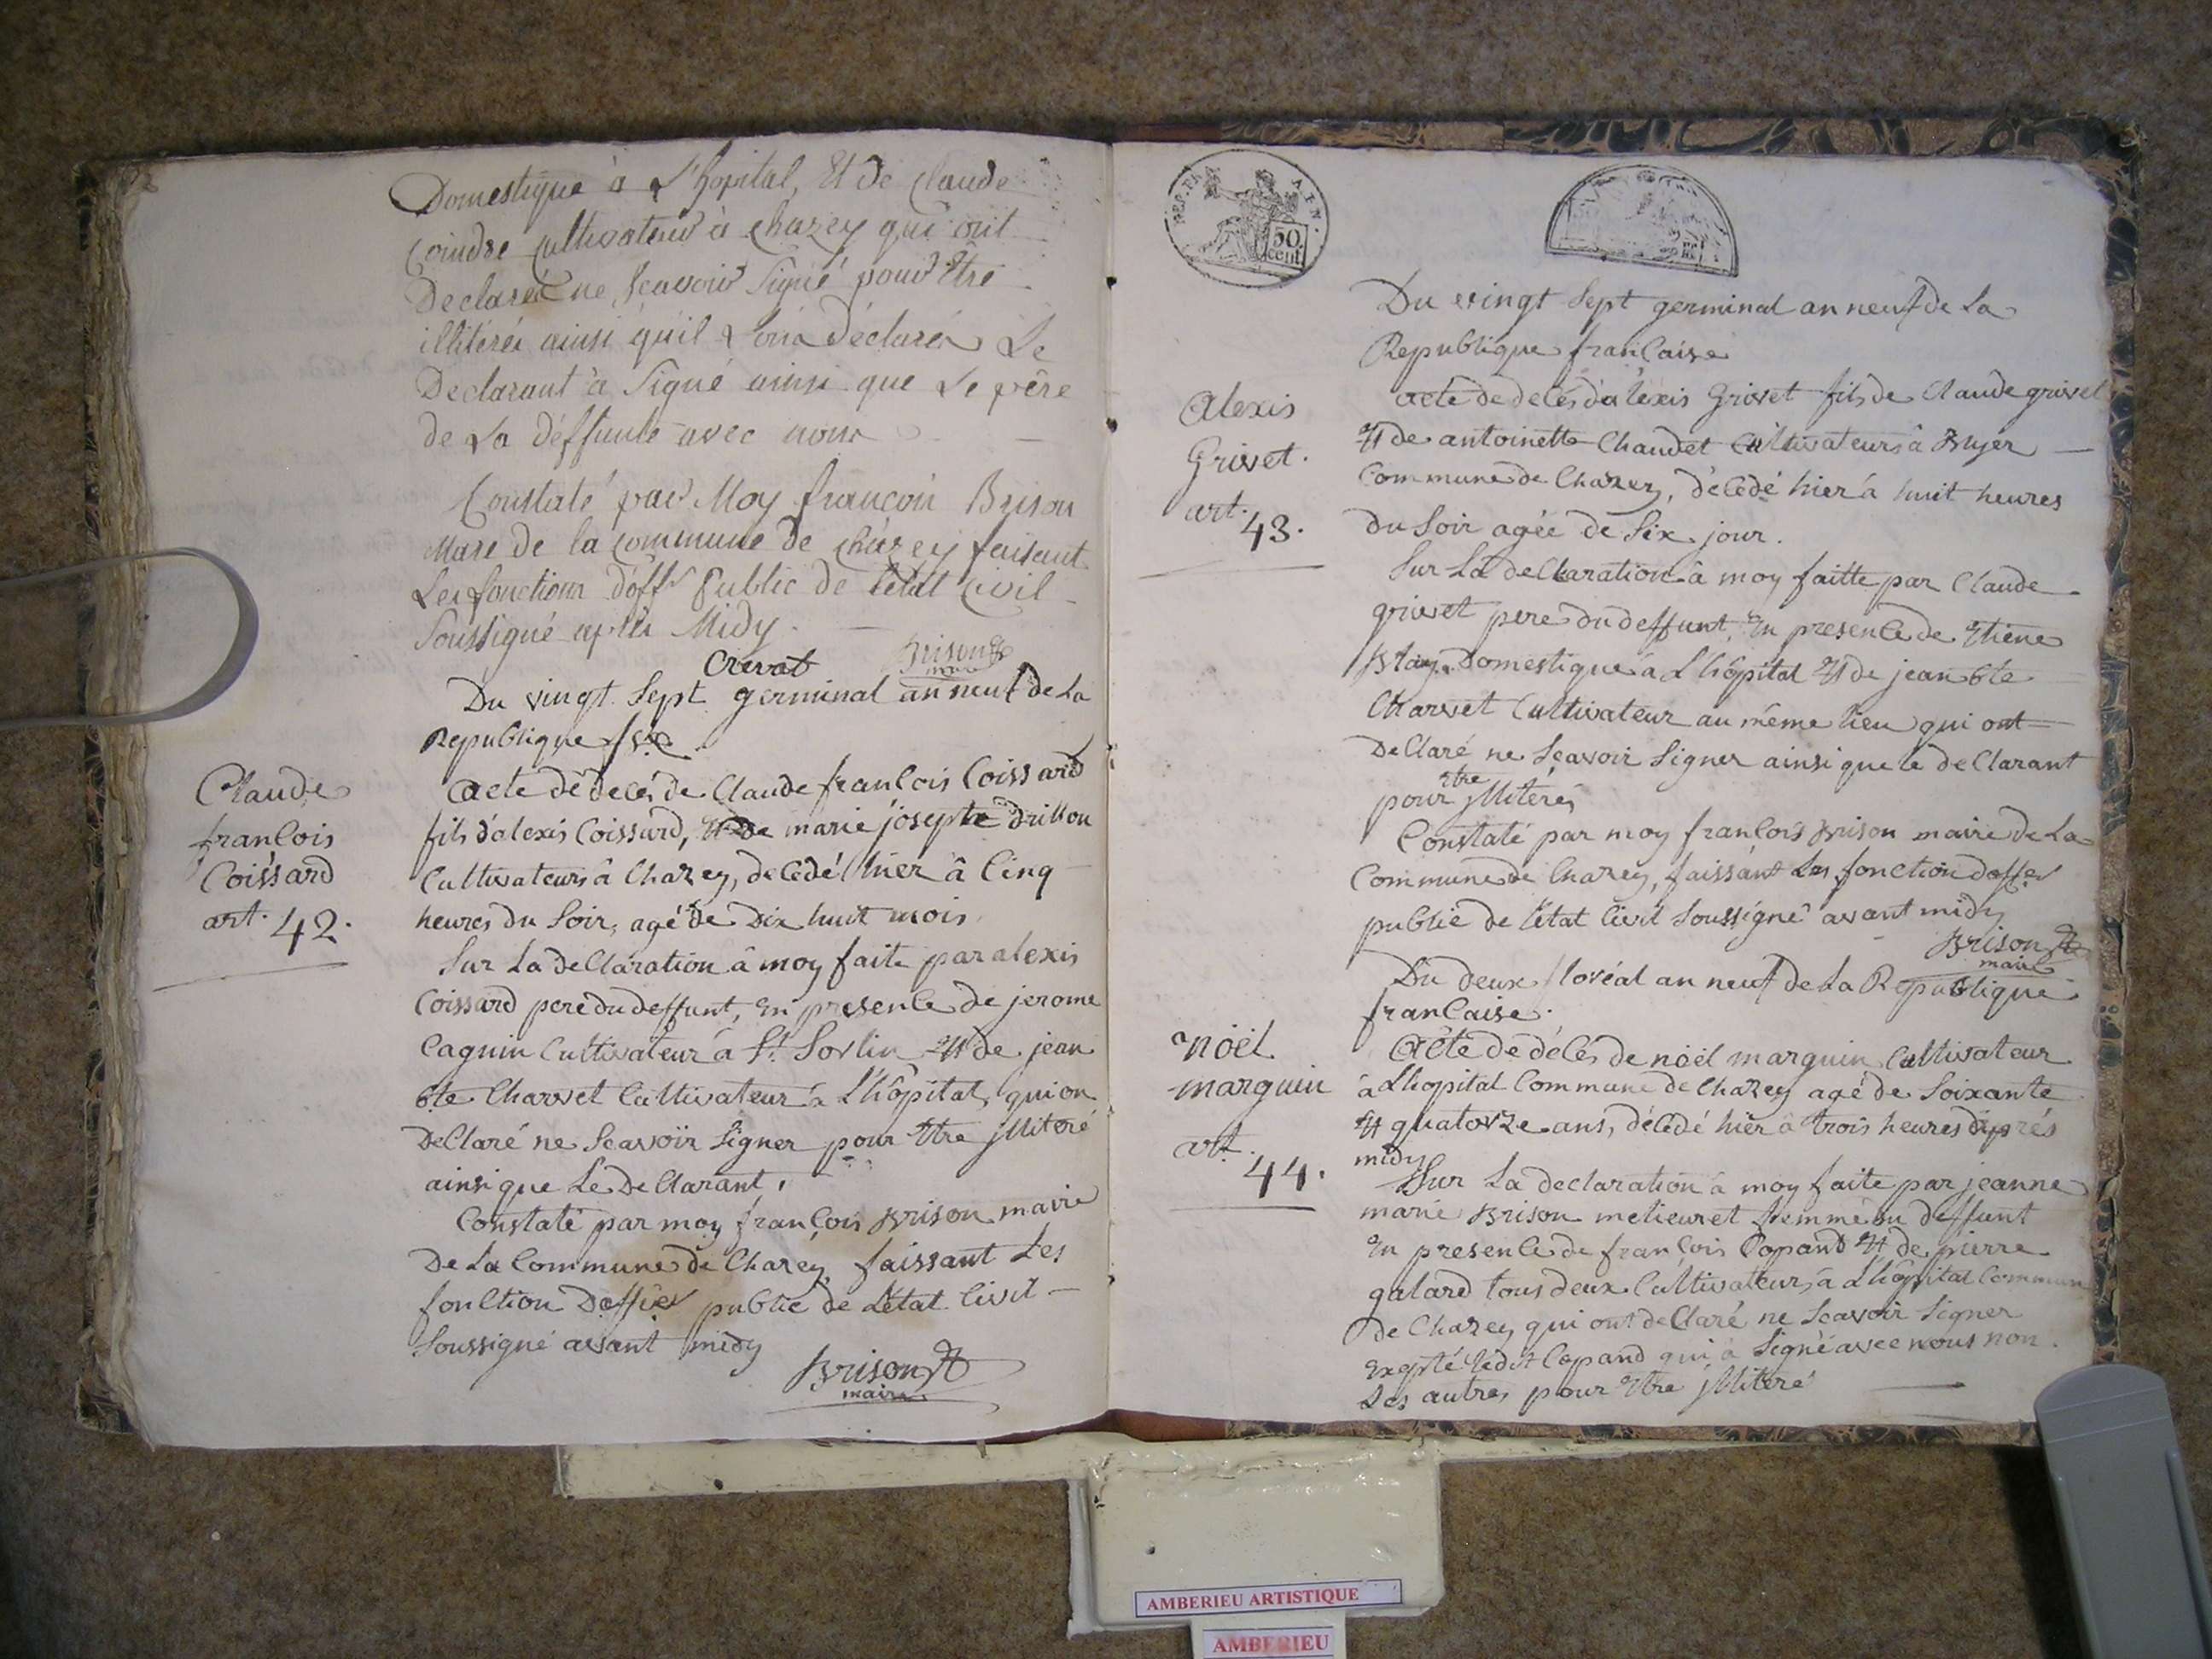 Domestique à L'hopital, Et de Claude
Coindre Cultivateur à Chazey qui ont
Declareé ne sçavoir Signé pour Être
illitéréz ainsi qu'il Lon a Déclaréz Le
Declarant à Signé ainsi que Le père
de La Déffunte avec nous
Constaté par Moy françois Brison
Mare de la commune de chazey faisant
Les fonctions d'offr Public de l'état Civil
Soussigné après Midy.
Crevat Brison
maire
Du vingt Sept germinal an neuf de La
Republique fse
Claude
francois
Coissard
art. 42.
acte de decés de Claude francois Coissard
fils d'alexis Coissard, Et de marie josephe drillon
Cultivateurs à Chazey, decédé hier à Cinq
heures du Soir, agé de Dix huit mois
Sur La declaration à moy faite par alexis
Coissard pere du deffunt, En presence de jerome
Cagnin Cultivateur à St Sorlin Et de jean
bte Charvet Cultivateur à L'hôpital, qui on
Declaré ne Scavoir Signer pour Etre jlliteré
ainsi que Le Declarant.
Constaté par moy françois Brison maire
De La Commune de Chazey faissant Les
fonction Dofficr public de L'état Civil
Soussigné avant midy
Brison
maire
REP. FRA
50
cent
Du vingt Sept germinal an neuf de La
Republique francaise
Alexis
Grivet.
art.
43.
acte de decés d'alexis Grivet fils de Claude grivet
Et de antoinette Chaudet Cultivateurs à Rujer
Commune de Chazey, décédé hier à huit heures
du Soir agée de Six jour.
Sur La declaration à moy faitte par Claude
grivet pere du deffunt, En presence de Etiene
Blay Domestique à L'hôpital Et de jean bte
Charvet Cultivateur au même lieu qui ont
Declaré ne Sçavoir Signer ainsi que le declarant
pour Etre jlliterés
Constaté par moy francois Brison maire de La
Commune de Chazey, faissant Les fonction doffer
public de l'état Civil Soussigné avant midy
Brison
maire
Du deux floréal an neuf de La Republique
francaise.
Nöel
marguin
art.
44.
Acte de décés de nöel marguin Cultivateur
à L'hopital Commune de Chazey agé de Soixante
Et quatorze ans, décédé hier à trois heures d'après
midy
Sur La declaration à moy faite par jeanne
marie Brison metieuret femme du deffunt
En presence de francois Copand Et de pierre
galard tous deux Cultivateurs à L'hôpital Commun
de Chazey qui ont declaré ne Scavoir Signer
Exepté ledit Copand qui à Signé avec nous non
Les autres pour Etre jlliteré
AMBERIEU ARTISTIQUE
AMBERIEU